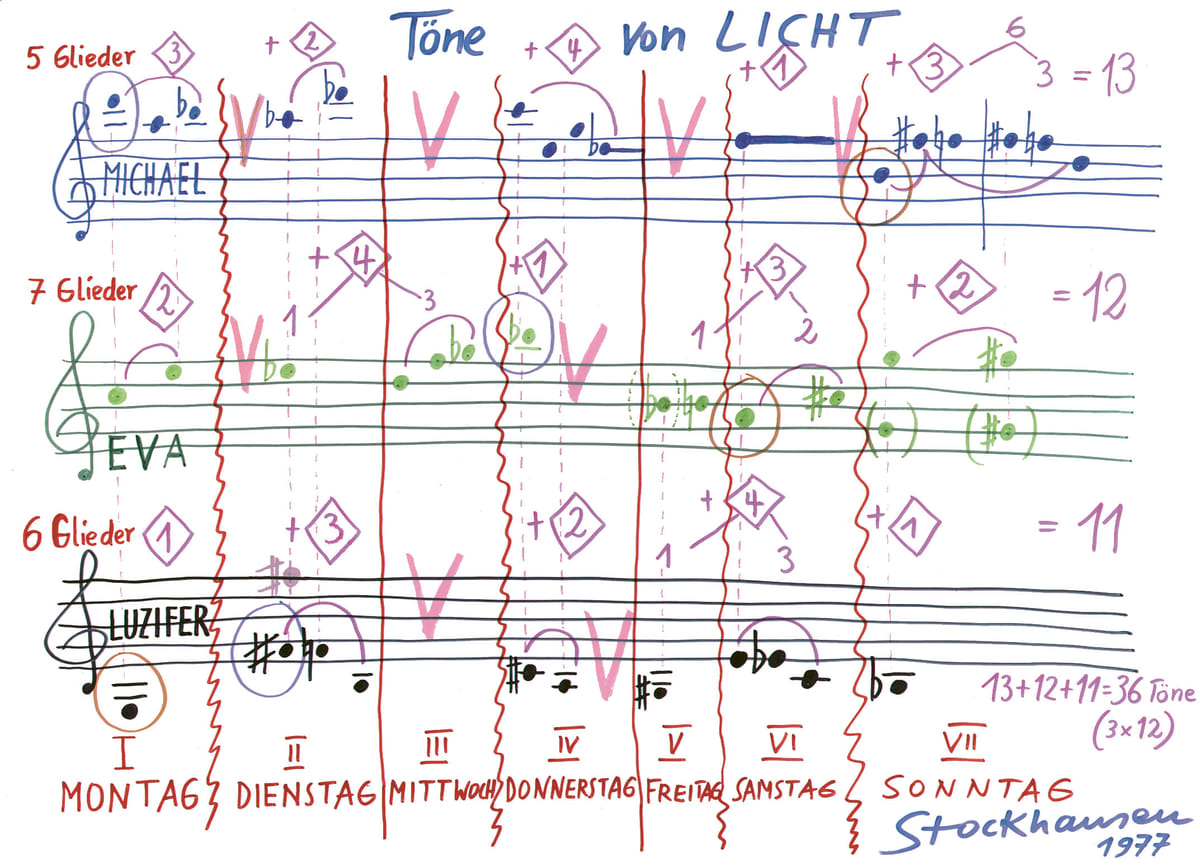 Töne von LICHT
5 Glieder 3 + 2 + 4 + 1 + 3 6 3 = 13
MICHAEL
7 Glieder 2 + 4 1 3 + 1 + 3 1 2 + 2 = 12
EVA
6 Glieder 1 + 3 + 2 + 4 1 3 + 1 = 11
LUZIFER
13+12+11=36 Töne
(3x12)
I II III IV V VI VII
MONTAG DIENSTAG MITTWOCH DONNERSTAG FREITAG SAMSTAG SONNTAG
Stockhausen
1977